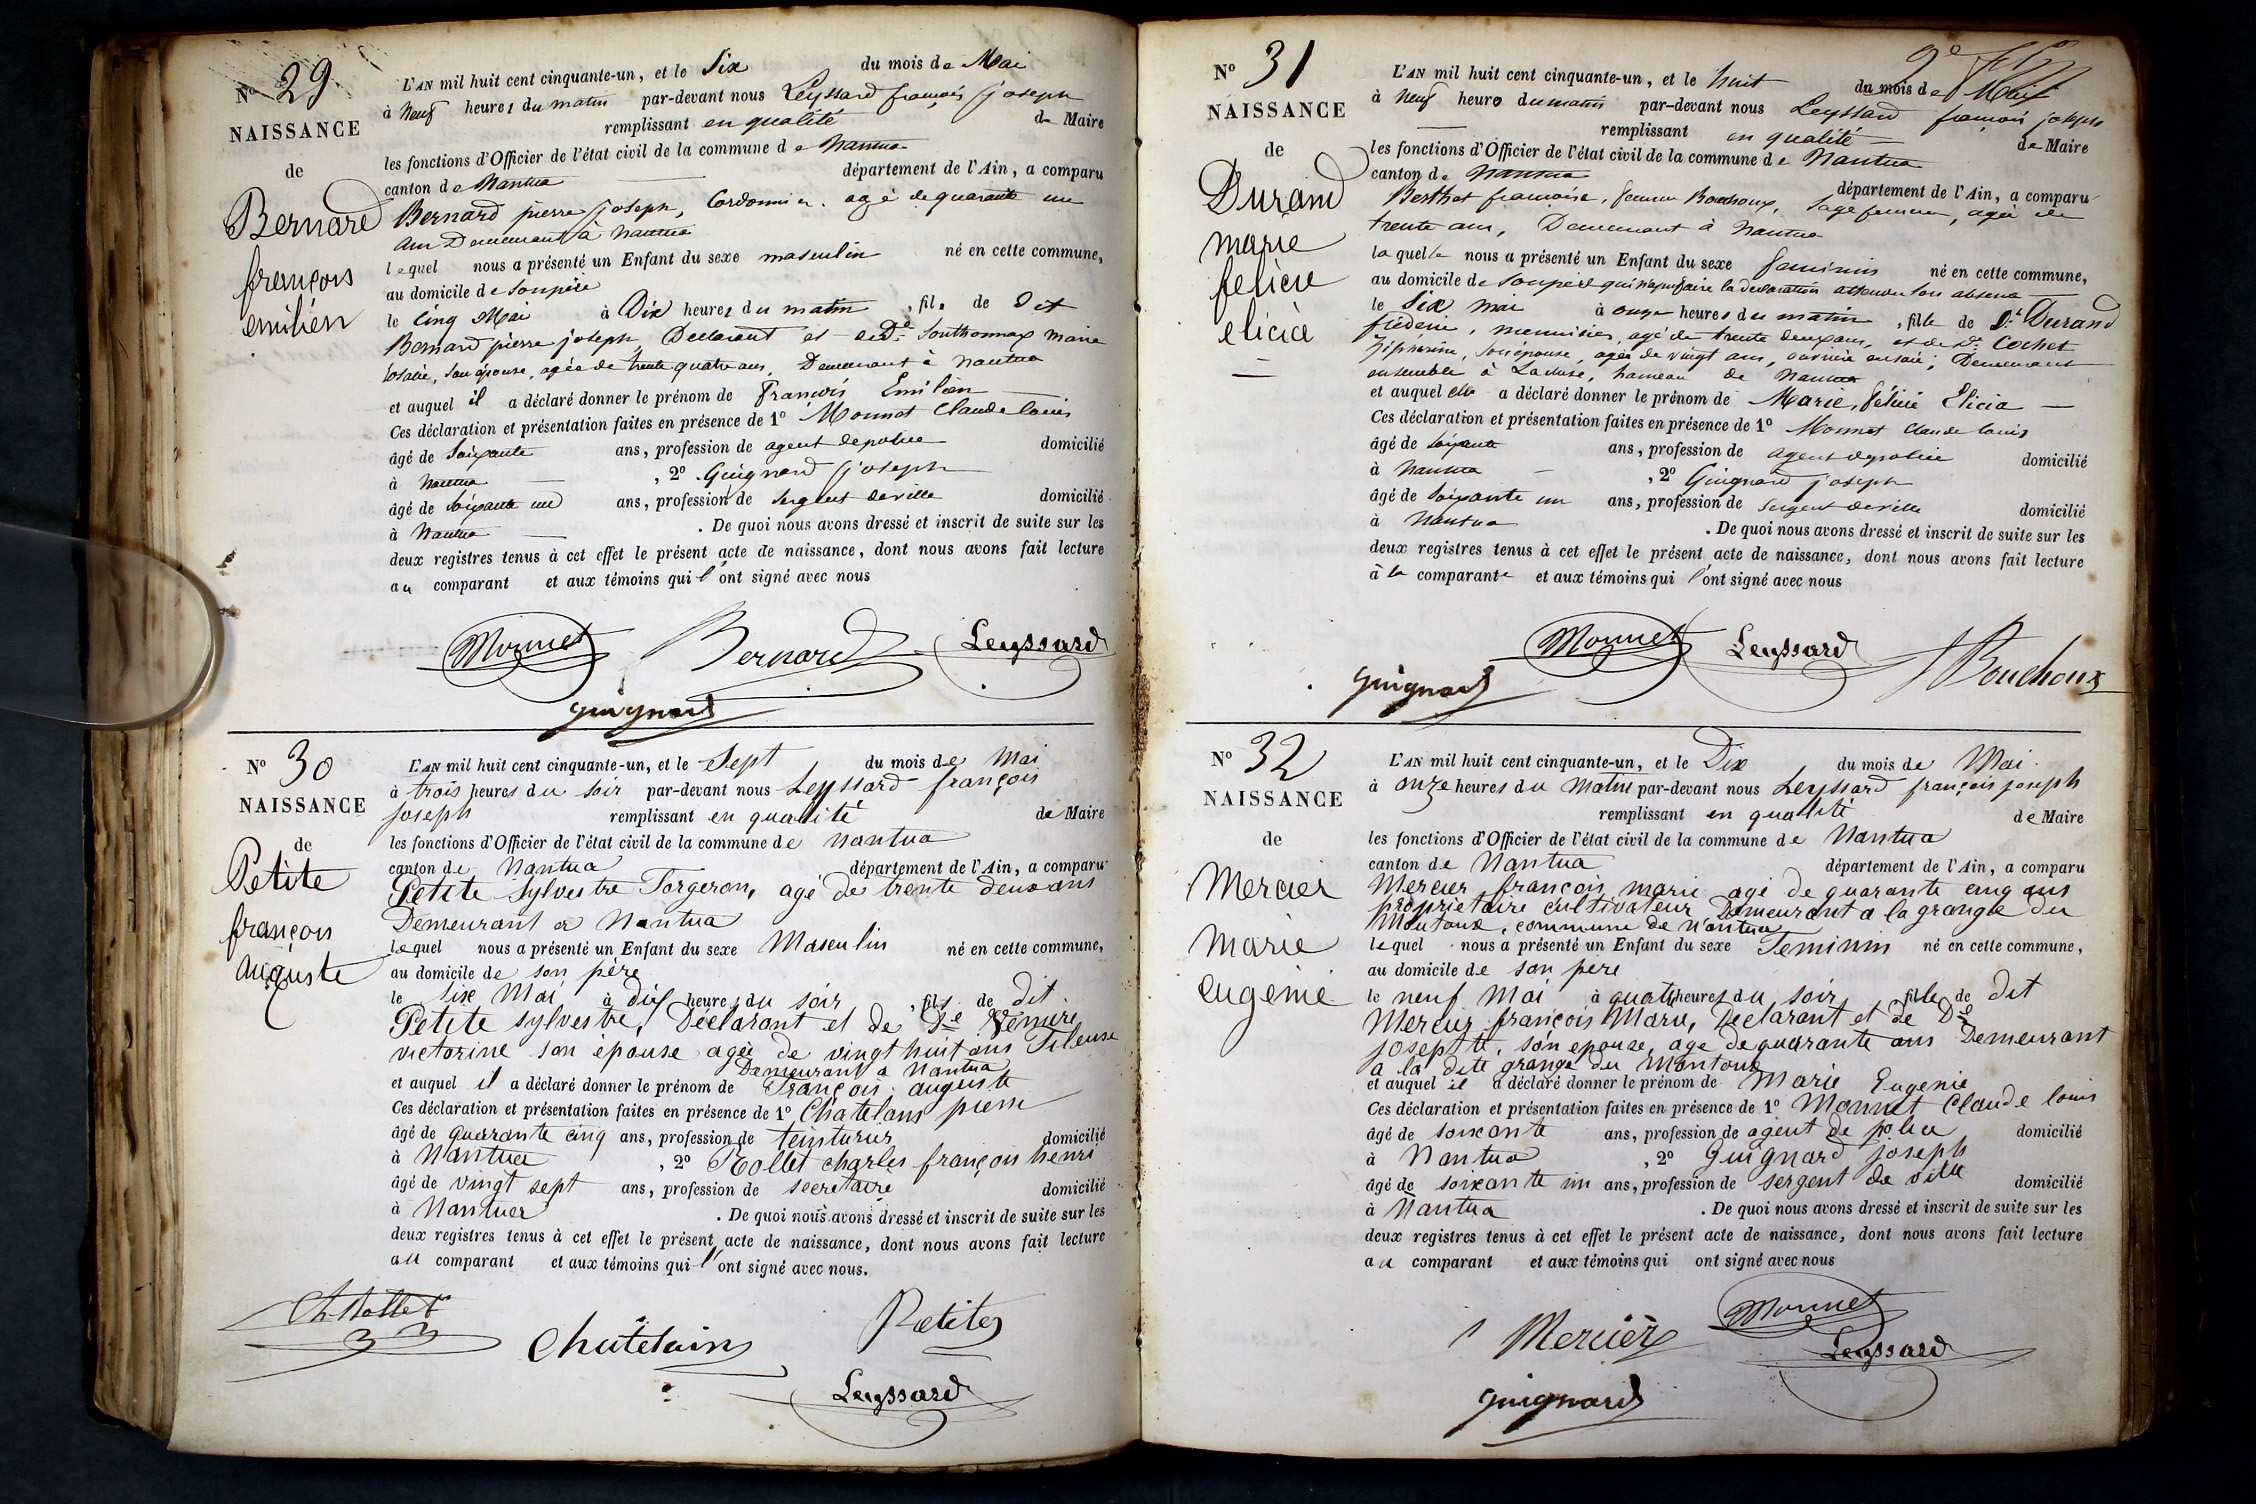 Nº 29
NAISSANCE
de
Bernard
françois
emilién
L'AN mil huit cent cinquante-un, et le Six du mois de Mai
à Neuf heures du matin par-devant nous Leyssard françois joseph
remplissant en qualité de Maire
les fonctions d'Officier de l'état civil de la commune de Nantua
canton de Nantua département de l'Ain, a comparu
Bernard pierre joseph, Cordonnier. agé de quarante un
ans Demeurant à Nantua
lequel nous a présenté un Enfant du sexe masculin né en cette commune,
au domicile de son père
le cinq Mai à Dix heures du matin, fils de Dit
Bernard pierre joseph, Declarant et de De Southonnax marie
, son épouse, agée de trente quatre ans, Demeurant à Nantua
et auquel il a déclaré donner le prénom de François Emilién
Ces déclaration et présentation faites en présence de 1º Monnet Claude louis
âgé de Soixante ans, profession de agent de police domicilié
à Nantua, 2º Guignard joseph
âgé de Soixante un ans, profession de Sergent de ville domicilié
à Nantua. De quoi nous avons dressé et inscrit de suite sur les
deux registres tenus à cet effet le présent acte de naissance, dont nous avons fait lecture
au comparant et aux témoins qui l'ont signé avec nous
Monnet Bernard Leyssard
Guignard
Nº 30
NAISSANCE
de
Petite
françois
auguste
L'AN mil huit cent cinquante-un, et le Sept du mois de Mai
à trois heures du soir par-devant nous Leyssard françois
joseph remplissant en qualité de Maire
les fonctions d'Officier de l'état civil de la commune de Nantua
canton de Nantua département de l'Ain, a comparu
Petite Sylvestre Forgeron, agé de trente deux ans
Demeurant a Nantua
lequel nous a présenté un Enfant du sexe Masculin né en cette commune,
au domicile de son père
le Six Mai à dix heures du soir, fils de dit
Petite sylvestre, Déclarant et de De
victorine son épouse agée de vingt huit ans Fileuse
Demeurant a Nantua
et auquel il a déclaré donner le prénom de François auguste
Ces déclaration et présentation faites en présence de 1º Chatelain pierre
âgé de quarante cinq ans, profession de teinturier domicilié
à Nantua, 2º Rollet charles françois henri
âgé de vingt sept ans, profession de secretaire domicilié
à Nantua. De quoi nous avons dressé et inscrit de suite sur les
deux registres tenus à cet effet le présent acte de naissance, dont nous avons fait lecture
au comparant et aux témoins qui l'ont signé avec nous.
Ch Rollet
Chatelain Petite
Leyssard
Nº 31
NAISSANCE
de
Durand
marie
felicie
elicia
L'AN mil huit cent cinquante-un, et le huit du mois de Mai
à Neuf heure du matin par-devant nous Leyssard françois joseph
remplissant en qualité de Maire
les fonctions d'Officier de l'état civil de la commune de Nantua
canton de Nantua département de l'Ain, a comparu
Berthet françoise, femme Bouchoux, Sage femme, agée de
trente ans, Demeurant à Nantua
laquelle nous a présenté un Enfant du sexe féminin né en cette commune,
au domicile de son père qui n'a pu faire la declaration attendu son absence
le Six mai à onze heures du matin, fille de Dt Durand
fréderic, menuisier, agé de trente deux ans, et de De Cochet
Zépherine, son épouse, agée de vingt ans, ouvrière en soie, Demeurant
ensemble à Lacluse, hameau de Nantua
et auquel elle a déclaré donner le prénom de Marie, félicie Elicia
Ces déclaration et présentation faites en présence de 1º Monnet Claude louis
âgé de Soixante ans, profession de agent de police domicilié
à Nantua, 2º Guignard joseph
âgé de Soixante un ans, profession de Sergent de ville domicilié
à Nantua. De quoi nous avons dressé et inscrit de suite sur les
deux registres tenus à cet effet le présent acte de naissance, dont nous avons fait lecture
à la comparante et aux témoins qui l'ont signé avec nous
Monnet Leyssard Bouchoux
Guignard
Nº 32
NAISSANCE
de
Mercier
Marie
Eugénie
L'AN mil huit cent cinquante-un, et le Dix du mois de Mai
à onze heures du Matin par-devant nous Leyssard françois joseph
remplissant en qualité de Maire
les fonctions d'Officier de l'état civil de la commune de Nantua
canton de Nantua département de l'Ain, a comparu
Mercier françois marie agé de quarante cinq ans
propriétaire cultivateur Demeurant a la grange du
Montoux, commune de Nantua
lequel nous a présenté un Enfant du sexe Feminin né en cette commune,
au domicile de son père
le neuf Mai à quatre heures du soir, fille de dit
Mercier françois Marie, Declarant et de De
josephte, son épouse, age de quarante ans Demeurant
a la dite grange du Montoux
et auquel il a déclaré donner le prénom de Marie Eugenie
Ces déclaration et présentation faites en présence de 1º Monnet Claude louis
âgé de soixante ans, profession de agent de police domicilié
à Nantua, 2º Guignard joseph
âgé de soixante un ans, profession de sergent de ville domicilié
à Nantua. De quoi nous avons dressé et inscrit de suite sur les
deux registres tenus à cet effet le présent acte de naissance, dont nous avons fait lecture
au comparant et aux témoins qui ont signé avec nous
Monnet
Mercier Leyssard
Guignard